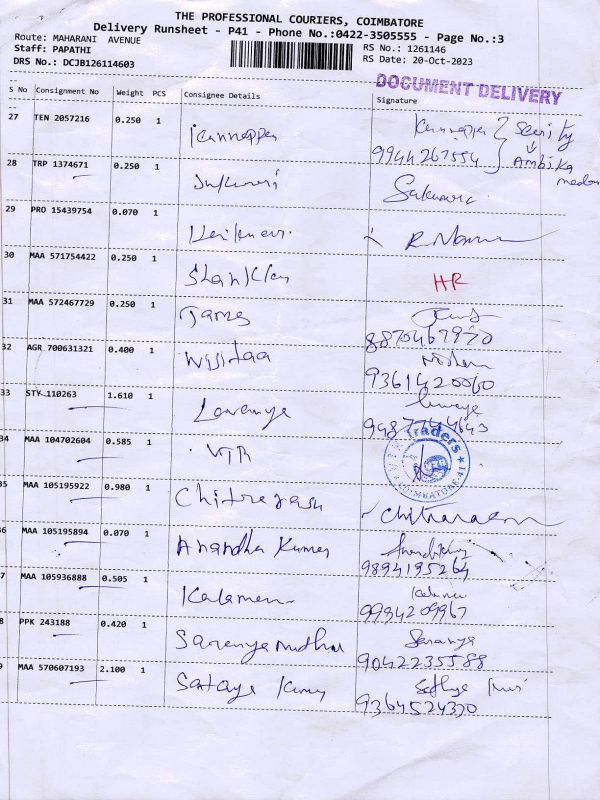 THE PROFESSIONAL COURIERS, COIMBATORE
Delivery Runsheet - P41 - Phone No.:0422-3505555 - Page No.:3
Route: MAHARANI AVENUE
Staff: PAPATHI
DRS No.: DCJB126114603
RS No.: 1261146
RS Date: 20-Oct-2023
DOCUMENT DELIVERY
S No Consignment No Weight PCS Consignee Details Signature
27 TEN 2057216 0.250 1 Kannappan Kannappan
9944267554
Ambika
28 TRP 1374671 0.250 1 Sukumari Sukumari
29 PRO 15439754 0.070 1
30 MAA 571754422 0.250 1 HR
31 MAA 572467729 0.250 1 James
8870467970
32 AGR 700631321 0.400 1
9361420060
33 STY 110263 1.610 1 Lavanya
9487744643
34 MAA 104702604 0.585 1 VJR
Traders
COIMBATORE-41
35 MAA 105195922 0.980 1 Chitrarasu
36 MAA 105195894 0.070 1 Anandha Kumar
9894195264
37 MAA 105936888 0.505 1
9994209967
38 PPK 243188 0.420 1 Saranya Saranya
9042235588
39 MAA 570607193 2.100 1 Sathya
9364524330